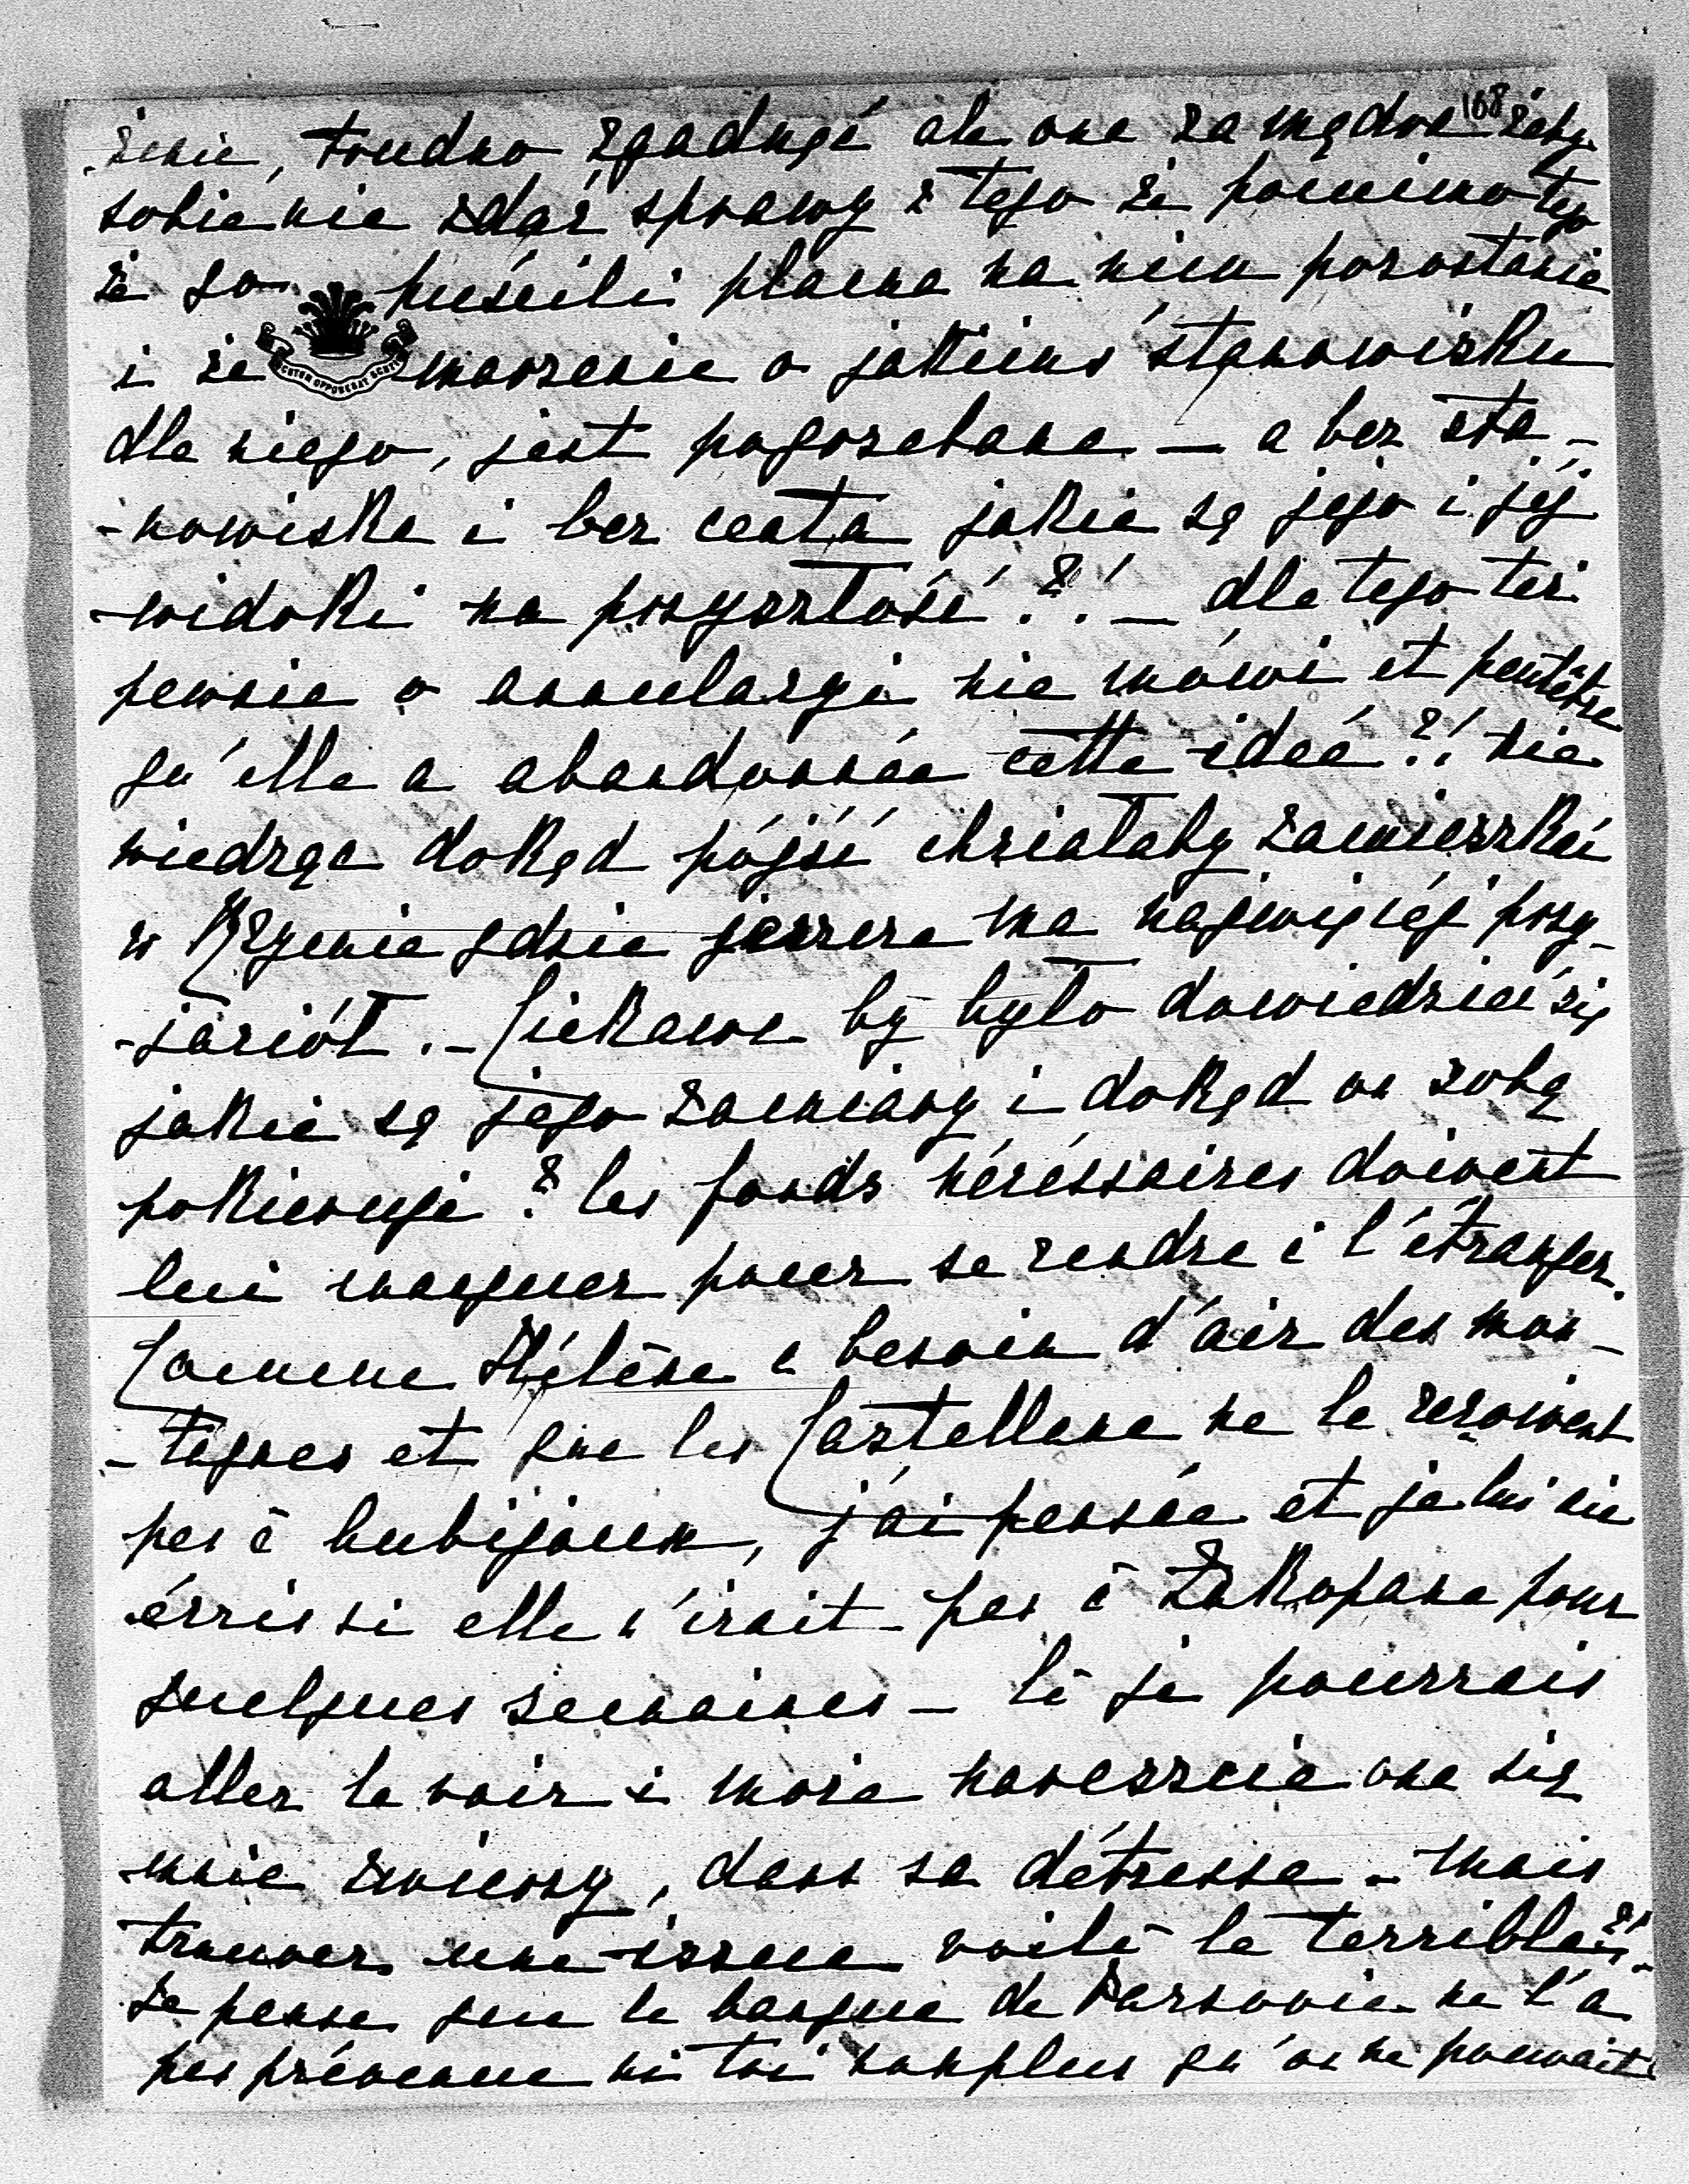 168
żenie, trudno zgadnąć ale ona za mądra żeby
sobie nie zdać sprawy z tego że pomimo tego
że go puścili plama na nim pozostanie
i że marzenie o jakiemś stanowisku
dla niego, jest pogrzebane — a bez sta-
-nowiska i bez centa jakie są jego i jéj
widoki na przyszłość?! — dla tego też
pewnie o annulacyi nie mówi et peutêtre
qu'elle a abandonnée cette ideé?! nie
wiedząc dokąd pójść chciałaby zamieszkać
w Rzymie gdzie jeszcze ma najwięcéj przy-
-jaciół. – Ciekawe by było dowiedzieć się
jakie są jego zamiary i dokąd on sobą
pokieruje? les fonds nécéssaires doivent
lui manquer pour se rendre à l'étranger.
Comme Hélène a besoin d'air des mon-
-tagnes et que les Castellane ne la reçoivent
pas à Aubijoux, j'ai pensée et je lui ai
écris si elle n'irait pas à Zakopane pour
quelques semaines – là je pourrais
aller la voir i może nareszcie ona się
mnie zwierzy, dans sa détresse. – Mais
trouver une issue voilà le terrible?!
Je pense que la banque de Varsovie ne l'a
pas prévenue ni toi nonplus qu'on ne pouvait